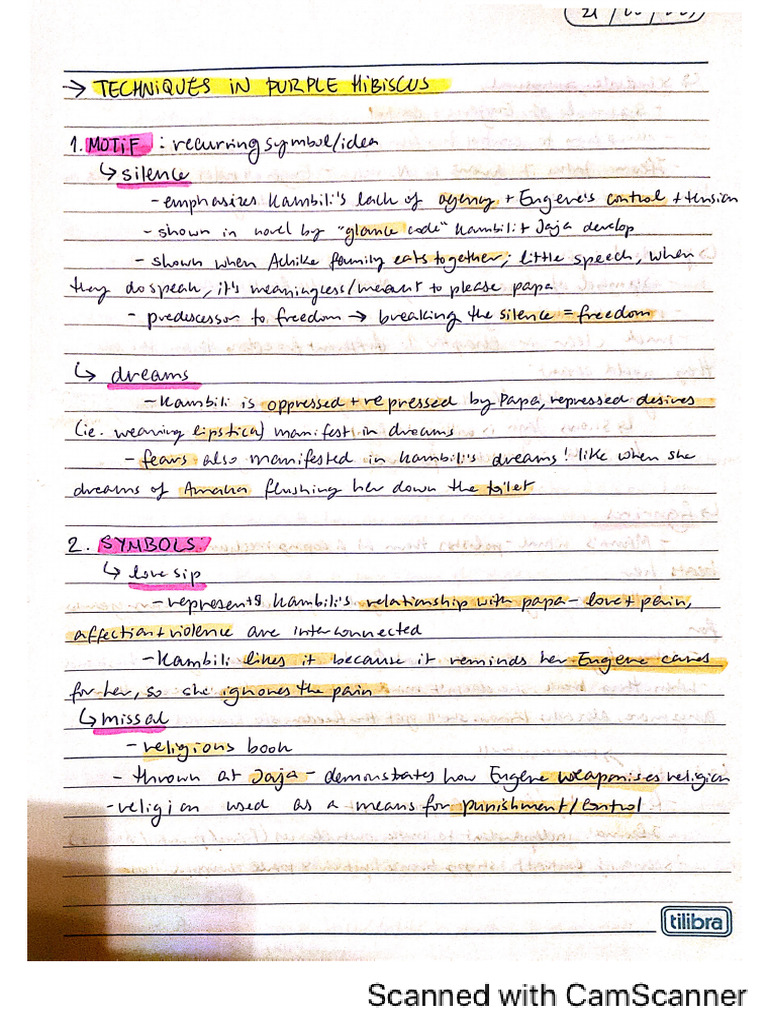 → TECHNIQUES IN PURPLE HIBISCUS
1. MOTIF : recurring symbol/idea
↳ silence
- emphasizes Kambili's lack of agency + Eugene's control + tension
- shown in novel by "glance code" Kambili + Jaja develop
- shown when Achike family eats together; little speech, when
they do speak, it's meaningless/meant to please papa
- predescessor to freedom → breaking the silence = freedom
↳ dreams
- Kambili is oppressed + repressed by Papa, repressed desires
(ie. wearing lipstick) manifest in dreams
- fears also manifested in Kambili's dreams! like when she
dreams of Amaka flushing her down the toilet
2. SYMBOLS:
↳ love sip
- represents Kambili's relationship with papa - love + pain,
affection + violence are interconnected
- Kambili likes it because it reminds her Eugene cares
for her, so she ignores the pain
↳ missal
- religious book
- thrown at Jaja - demonstrates how Eugene weaponises religion
- religion used as a means for punishment/control
tilibra
Scanned with CamScanner